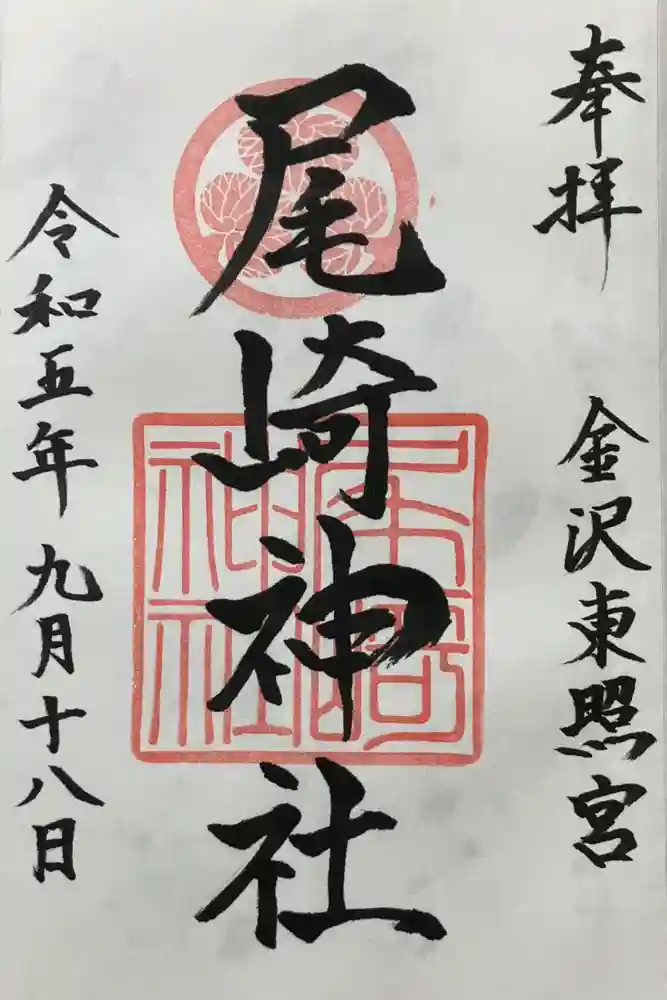 奉拝
金沢東照宮
尾崎神社
尾崎神社
令和五年九月十八日